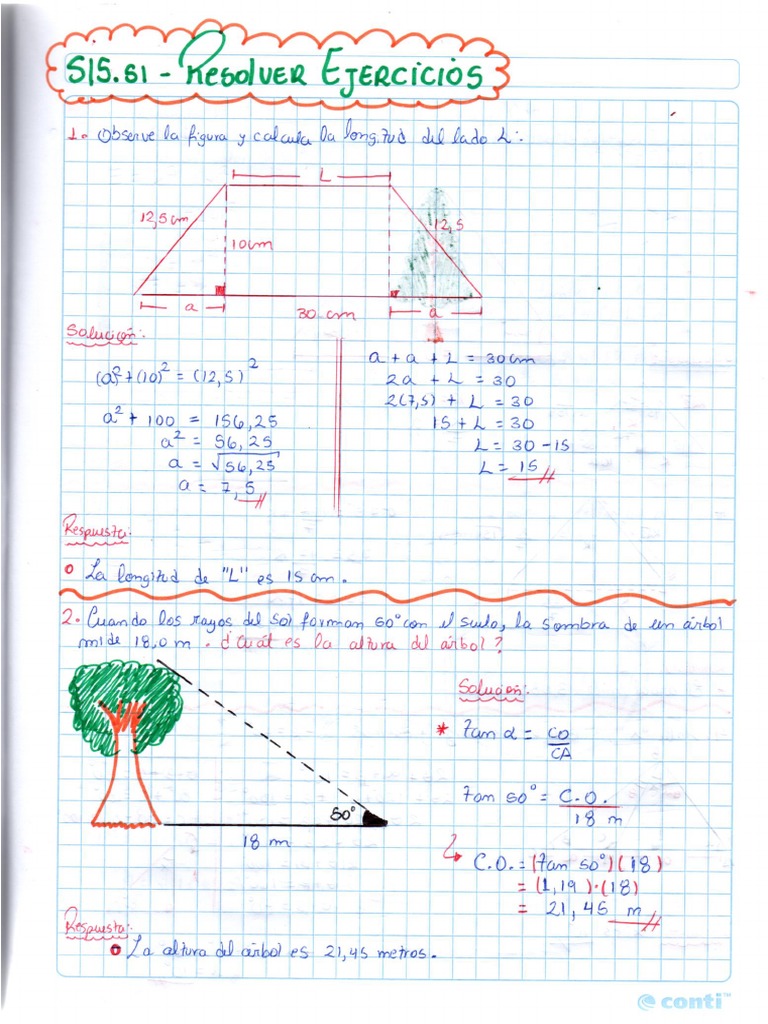 S15.S1 - RESOLVER EJERCICIOS
1. Observe la figura y calcula la longitud del lado L:
L
12,5 cm
12,5
10cm
a
30 cm
a
Solución:
(a)²+(10)² = (12,5)²
a² + 100 = 156,25
a² = 56,25
a = √56,25
a = 7,5
a + a + L = 30cm
2a + L = 30
2(7,5) + L = 30
15 + L = 30
L = 30 - 15
L = 15
Respuesta:
La longitud de "L" es 15 cm.
2. Cuando los rayos del sol forman 50° con el suelo, la sombra de un árbol
mide 18,0 m. ¿Cuál es la altura del árbol?
50°
18 m
Solución:
* Tan α = CO
CA
Tan 50° = C.O.
18 m
C.O. = (Tan 50°)(18)
= (1,19)·(18)
= 21,45 m
Respuesta:
La altura del árbol es 21,45 metros.
conti™